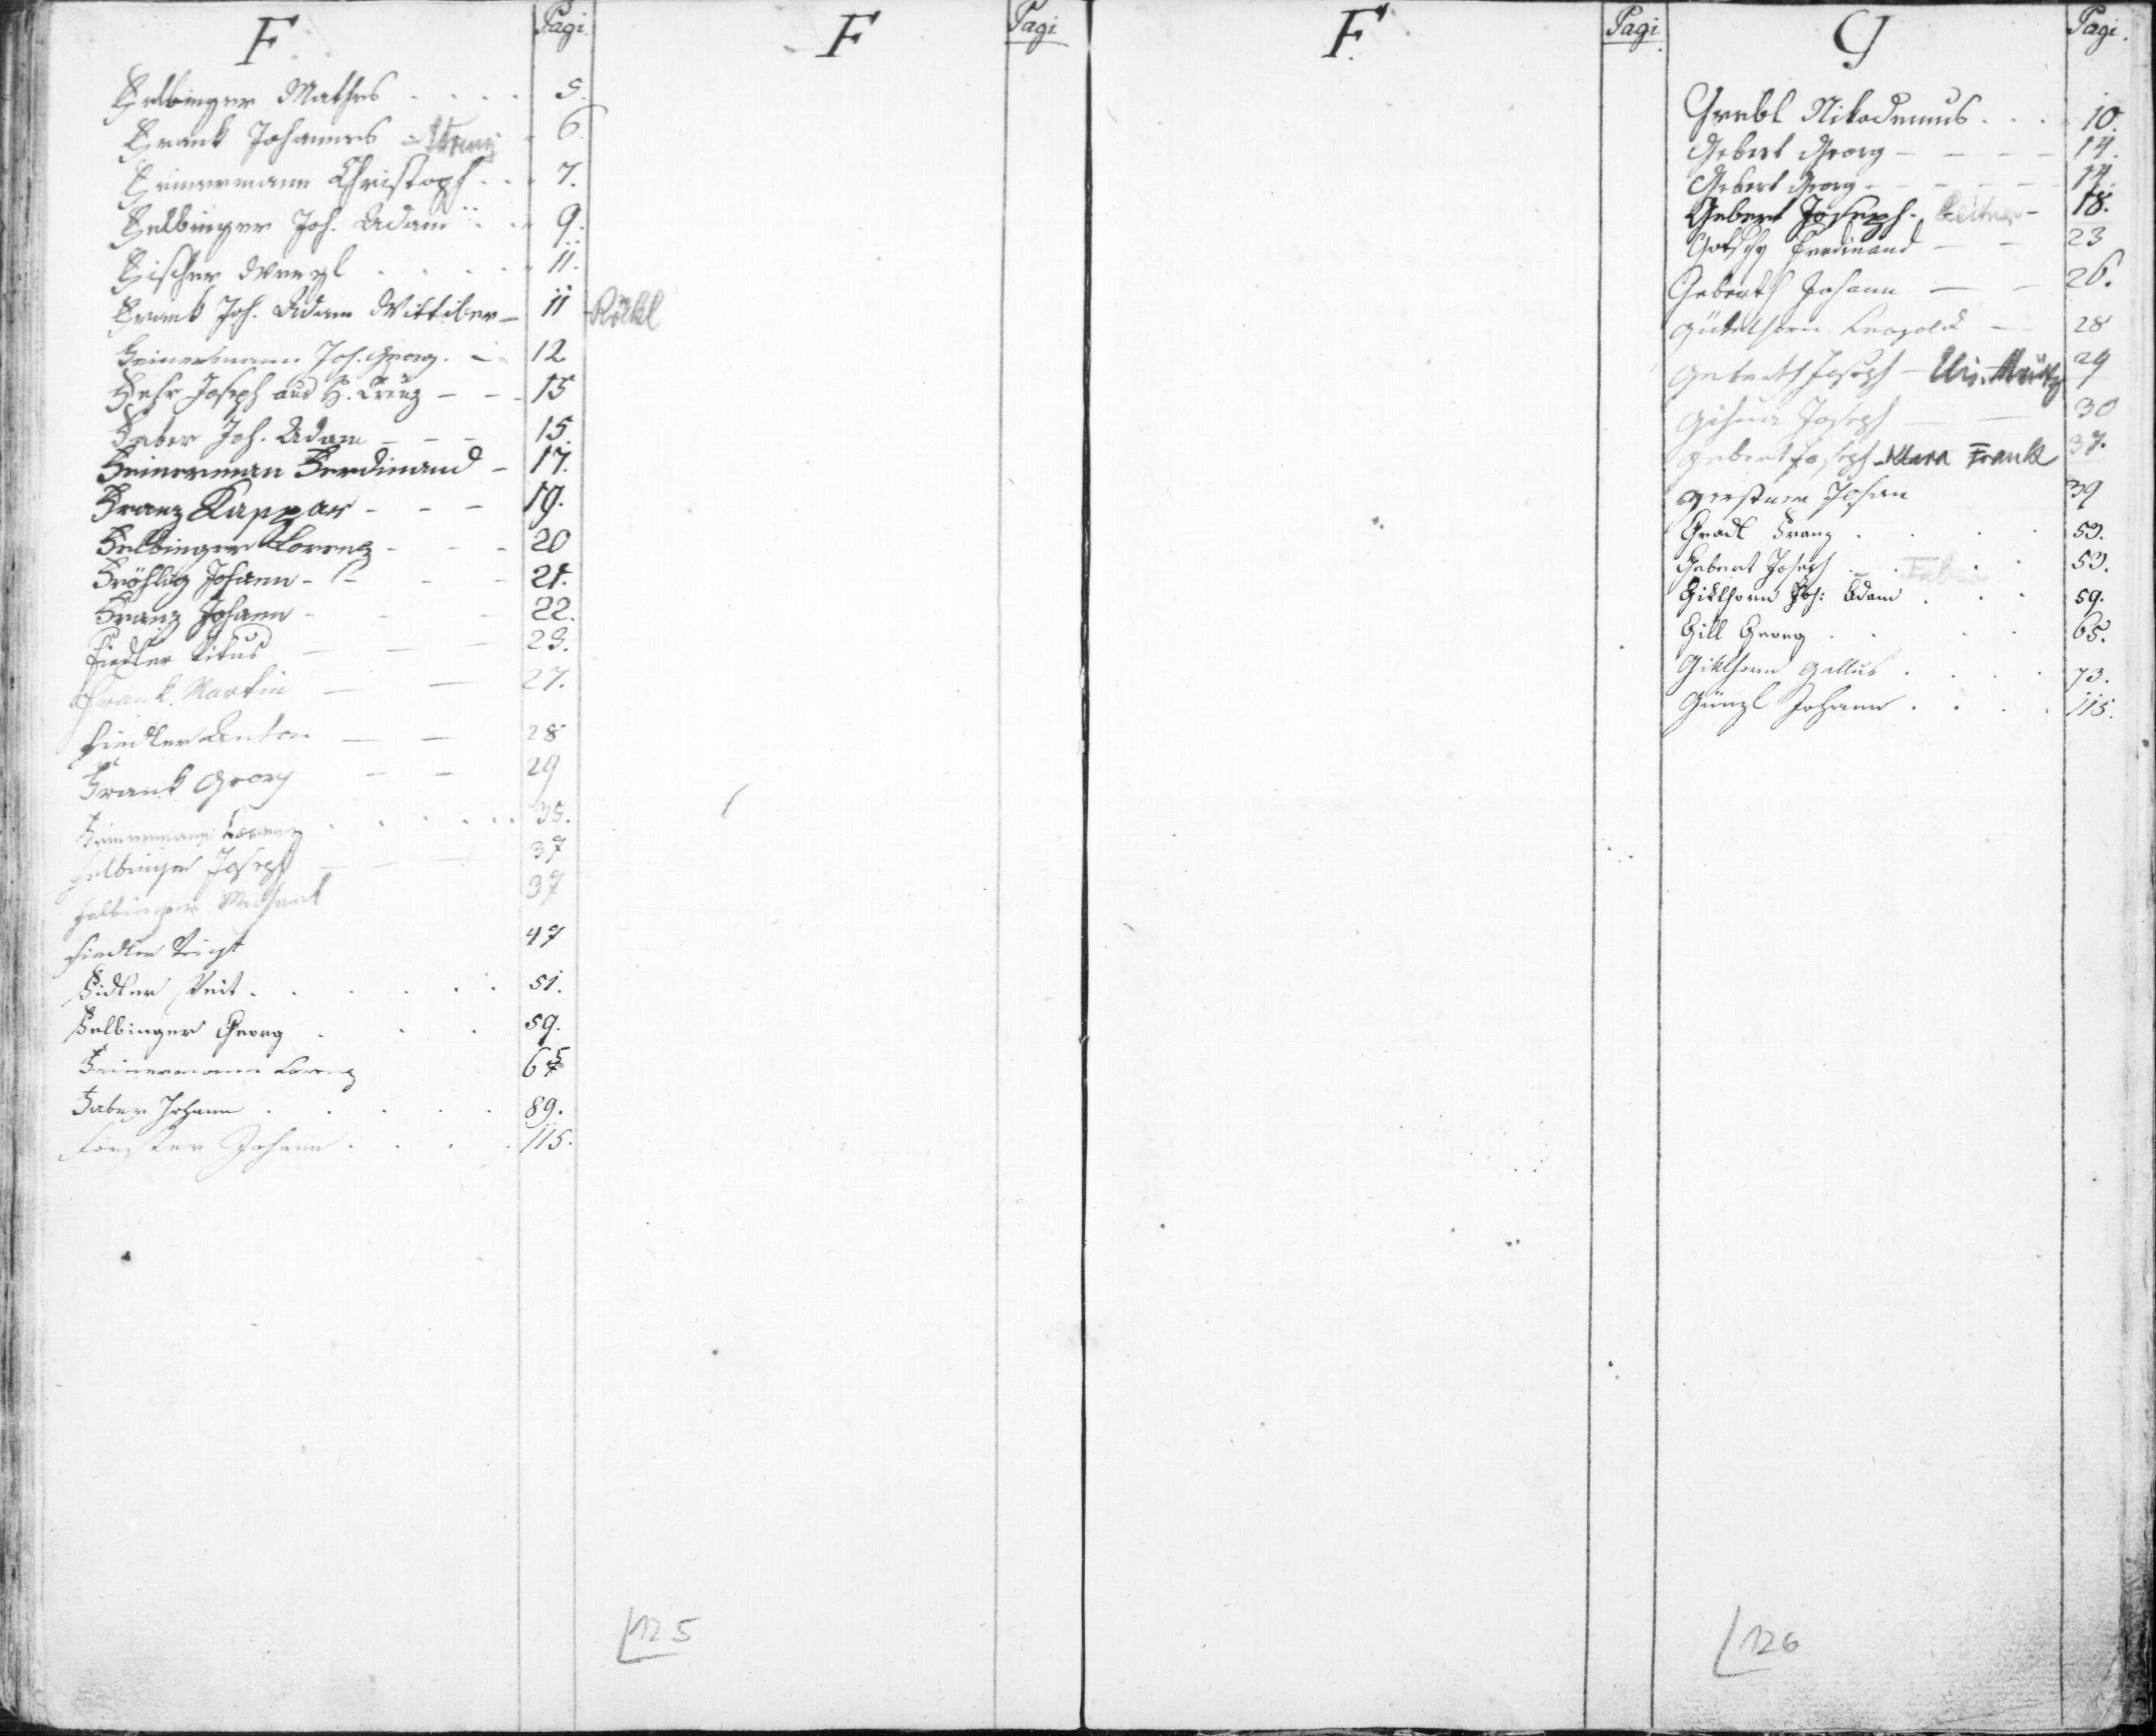 F Pagi.
Felbinger Mathes . . . . 5.
Frank Johannes - 6.
Heinermann Christoph . . . 7.
Felbinger Joh. Adam . . . 9.
Fischer Wenzl . . . . . 11.
Frank Joh. Adam Wittiber - 11 Röckl
Heinermann Joh. Georg. - 12
Fehr Joseph aus H. Creuz - - - 15
Faber Joh. Adam - - - 15.
Heinerman Ferdinand - 17.
Franz Kaspar - - - 19.
Felbinger Lorenz - - - 20
Fröhlig Johann - - - - 21.
Franz Johann - - - 22.
Fiedler Titus - - - 23.
Frank Martin - - 27.
Fiedler Anton - - 28
Frank Georg - - 29
Heinermann Lorenz . . . . . . 35.
Felbinger Joseph - - - 37
Felbinger Michael 37
Fiedler 47
Fidler Veit . . . . . . 51.
Felbinger Georg . . . 59.
Heinermann Lorenz 65
Faber Johann . . . . . 89.
Förster Johann . . . . 115.
F Pagi
125
F. Pagi.
G Pagi.
Grebl Nikodemus . . . . 10.
Gebert Georg - - - - 14.
Gebert Georg - - - - - - 14.
Gebert Joseph. Leitner - 18.
Gotschy Ferdinand - - 23
Geberth Johann - - 26.
Gückelhorn Leopold - - 28
Geberth Joseph - 29
Joseph - - 30
Gebert Joseph - Klara Frank 37.
Gerstner Johan 39
Gradl Franz . . . . 53.
Gebert Joseph . . . Faber . 53.
Giklhorn Joh: Adam . . . 59.
Gill Georg . . . . 65.
Giklhorn Gallus . . . . 73.
Günzl Johann . . . . 115.
126